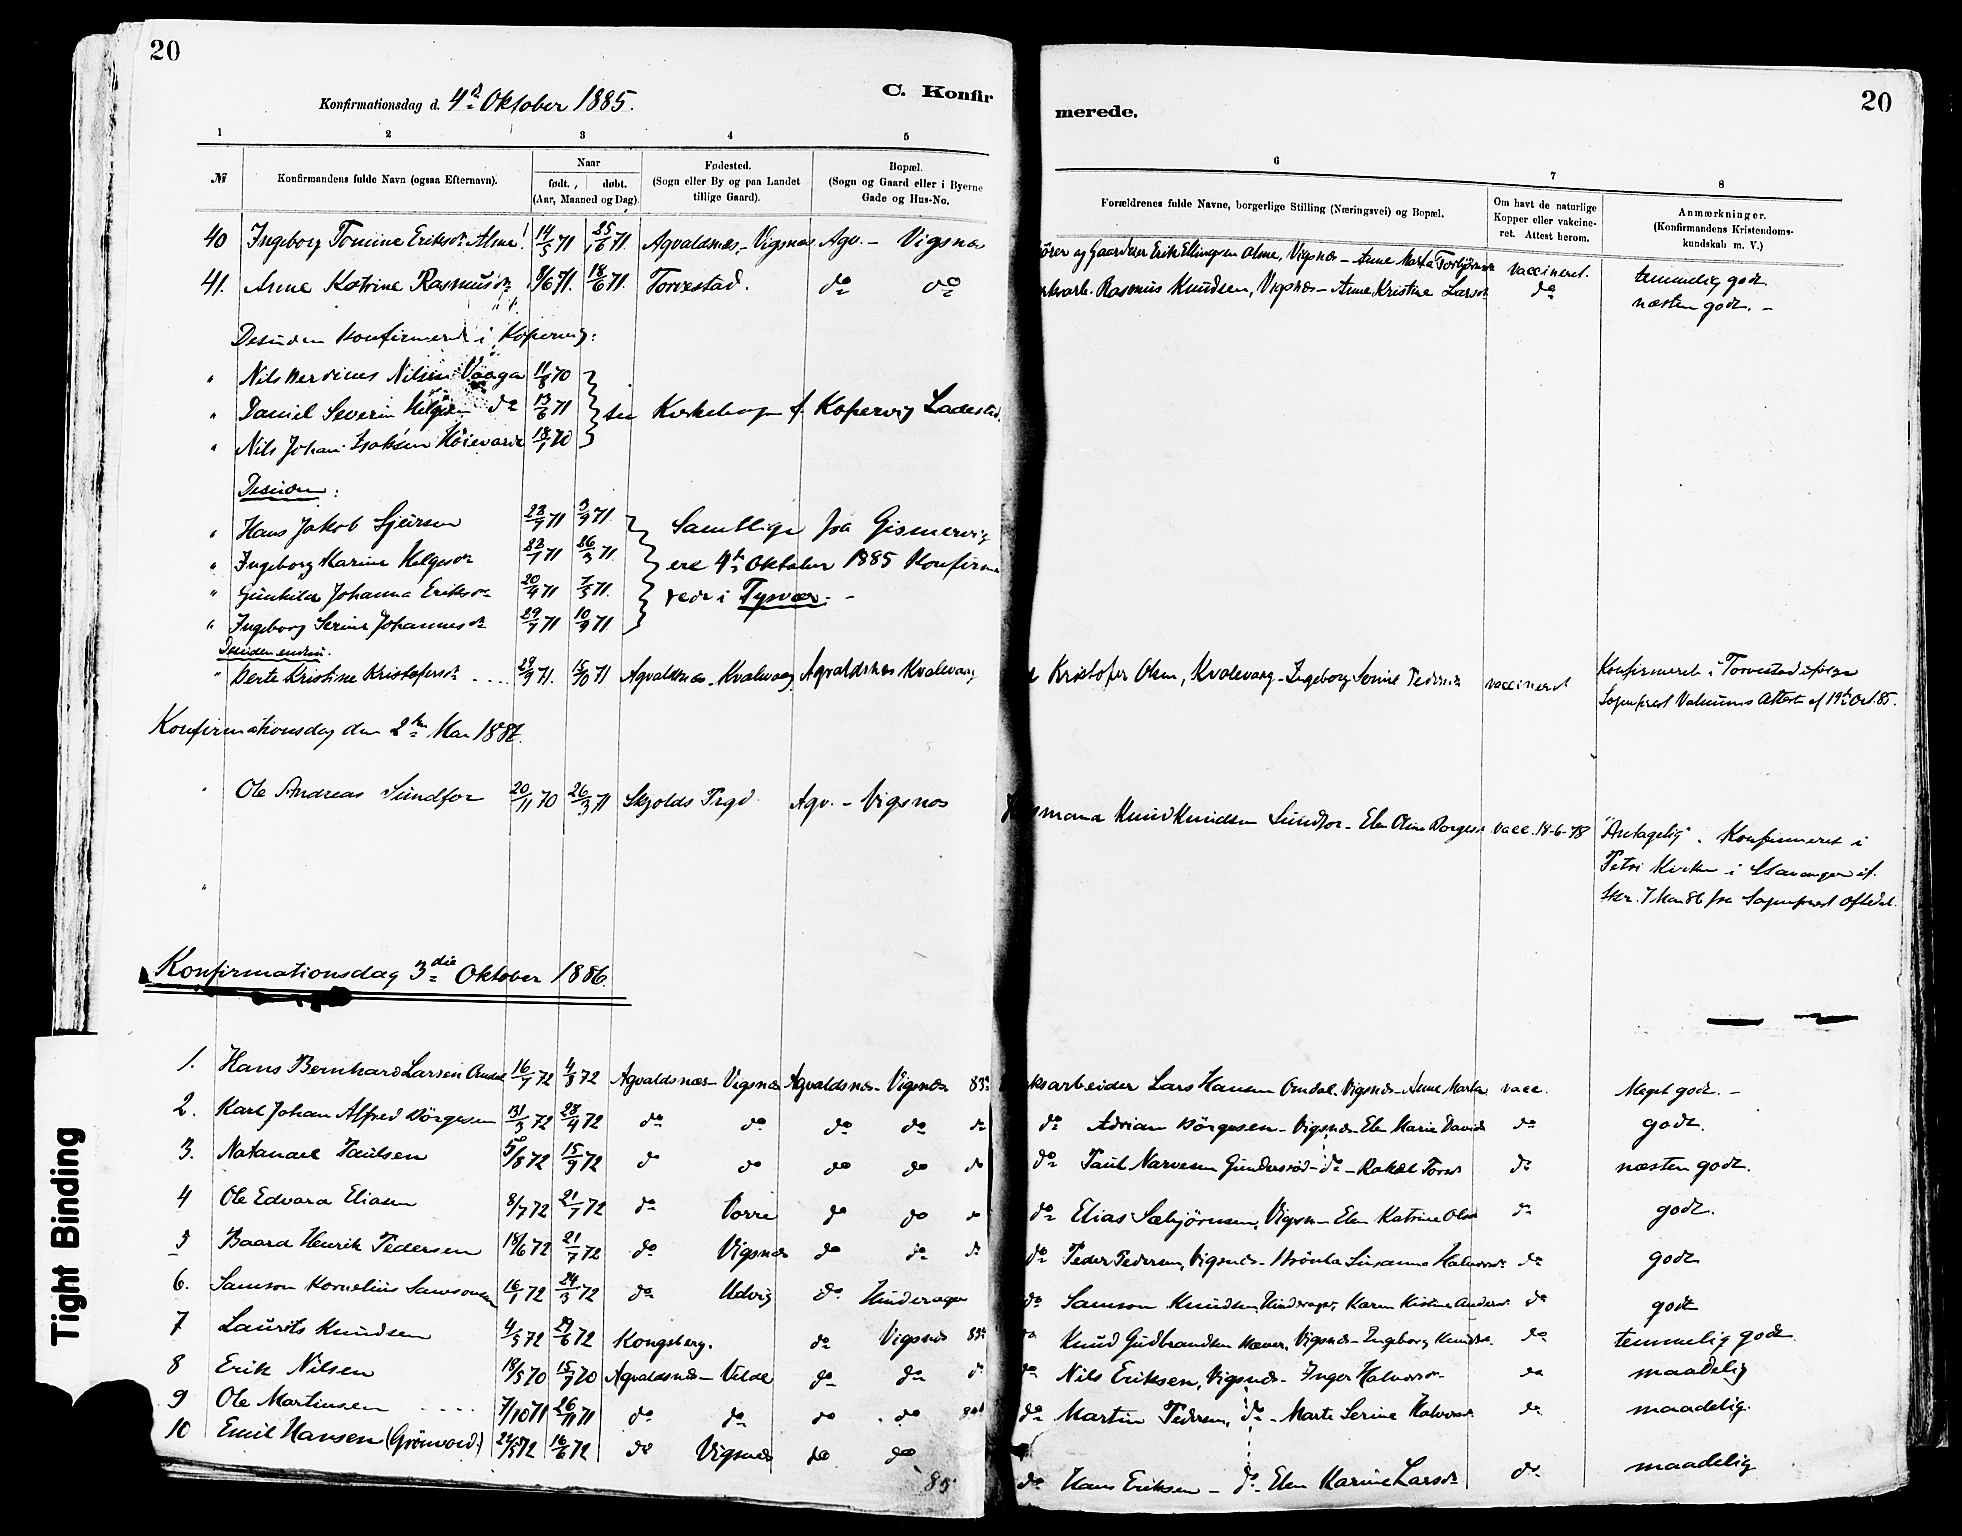 20
Konfirmationsdag d. 4de Oktober 1885.
C. Konfir
1 2 3 4 5
№ Konfirmandens fulde Navn (ogsaa Efternavn). Naar født, døbt. (Aar, Maaned og Dag). Fødested. (Sogn eller By og paa Landet tillige Gaard). Bopæl. (Sogn og Gaard eller i Byerne Gade og Hus-No.
40 Ingeborg Tomine Eriksdr Alme 14/5 71 25/6 71. Agvaldsnæs - Vigsnæs Agv. - Vigsnæs
41. Anne Katrine Rasmusdr 8/6 71. 18/6 71. Torvestad. do do
Desuden konfirmered i Kopervig:
" Nils Nilsen Vaaga 11/8 70
" Daniel Severin Helgesen do 13/6 71 se Kirkebogen f. Kopervig Ladested
" Nils Johan Isaksen Høievarde 18/1 70
Desuden:
" Hans Jakob Sjursen 23/7 71 3/9 71. Samtlige fra Gismervig
" Ingeborg Marine Helgesdr 22/1 71 26/3 71. ere 4de Oktober 1885 Konfirme
" Gunhilda Johanna Eriksdr 20/4 71 7/5 71. rede i Tysvær. -
" Ingeborg Serine Johannesdr 29/7 71 10/9 71
Desuden endnu.
" Berte Kristine Kristofersdr .... 29/9 71. 15/10 71 Agvaldsnæs - Kvalevaag Agvaldsnæs Kvalevaag
Konfirmationsdag den 2den Mai 1886.
" Ole Andreas Sundfør 20/11 70 26/3 71 Skjolds Prgd. Agv. - Vigsnæs
"
Konfirmationsdag 3die Oktober 1886.
1. Hans Bernhard Larsen Omdal 16/7 72 4/8 72 Agvaldsnæs - Vigsnæs Agvaldsnæs - Vigsnæs
2. Karl Johan Alfred Børgesen 31/3 72 28/4 72 do do do do do
3. Natanael Paulsen 5/8 72 15/9 72 do do do do do
4 Ole Edvard Eliasen 8/7 72 21/7 72 do Vorre do do do
5 Baard Henrik Pedersen 18/6 72 21/7 72 do Vigsnæs do do do
6. Samson Kornelius Samsonsen 16/1 72 24/3 72 do Udvig do Hinderager
7 Laurits Knudsen 4/5 72 29/6 72 Kongsberg. do Vigsnæs
8 Erik Nilsen 18/5 70 15/7 70 Agvaldsnæs - Velde do do do
9 Ole Martinsen .... 7/10 71 26/11 71 do do do do
10 Emil Hansen (Grønvold) 24/5 72 16/6 72 do Vigsnæs do do
85
merede.
20
6 7 8
Forældrenes fulde Navne, borgerlige Stilling (Næringsvei) og Bopæl. Om havt de naturlige Kopper eller vakcineret. Attest herom. Anmærkninger. (Konfirmandens Kristendomskundskab m. V.)
og Gaardeier Erik Ellingsen Alme, Vigsnæs - Anne Marta Torbjørnsdr vaccineret. temmelig godt
Rasmus Knudsen, Vigsnæs - Anne Kristine Larsdr do næsten godt. -
Kristofer Olsen, Kvalevaag - Ingeborg Serine Pedersdr vaccineret Konfirmeret i Torvestad ifølge
Sogneprest Attest af 19de Oct. 85.
Knud Knudsen Sundfør - Elen Oline Børgesdr vacc. 18-6-78 "Antagelig". Konfirmeret i
Petri Kirken i Stavanger if.
Skr. 7 Mai 86 fra Sogneprest Oftedal.
arbeider Lars Hansen Omdal, Vigsnæs - Anne Marta vacc. Meget godt. -
do Adrian Børgesen - Vigsnæs - Elen Marie Davids do godt.
do Paul Narvesen Gundersrød - do - Rakel Torsdr do næsten godt.
do Elias Sæbjørnsen, Vigsn. - Elen Katrine Olsdr do godt.
do Peder Pedersen, Vigsnæs - Susanne Halvorsdr do godt
do Samson Knudsen, Hinderager, Karen Kistine Andersdr do godt
do Knud Gudbrandsen Vigsnæs - Ingeborg Knudsdr. do temmelig godt.
do Nils Eriksen, Vigsnæs - Inger Halvorsdr do maadelig
do Martin Pedersen, do - Marte Serine Halvorsd. do maadelig.
do Hans Eriksen - do - Elen Karine Larsdr do maadelig
Tight Binding